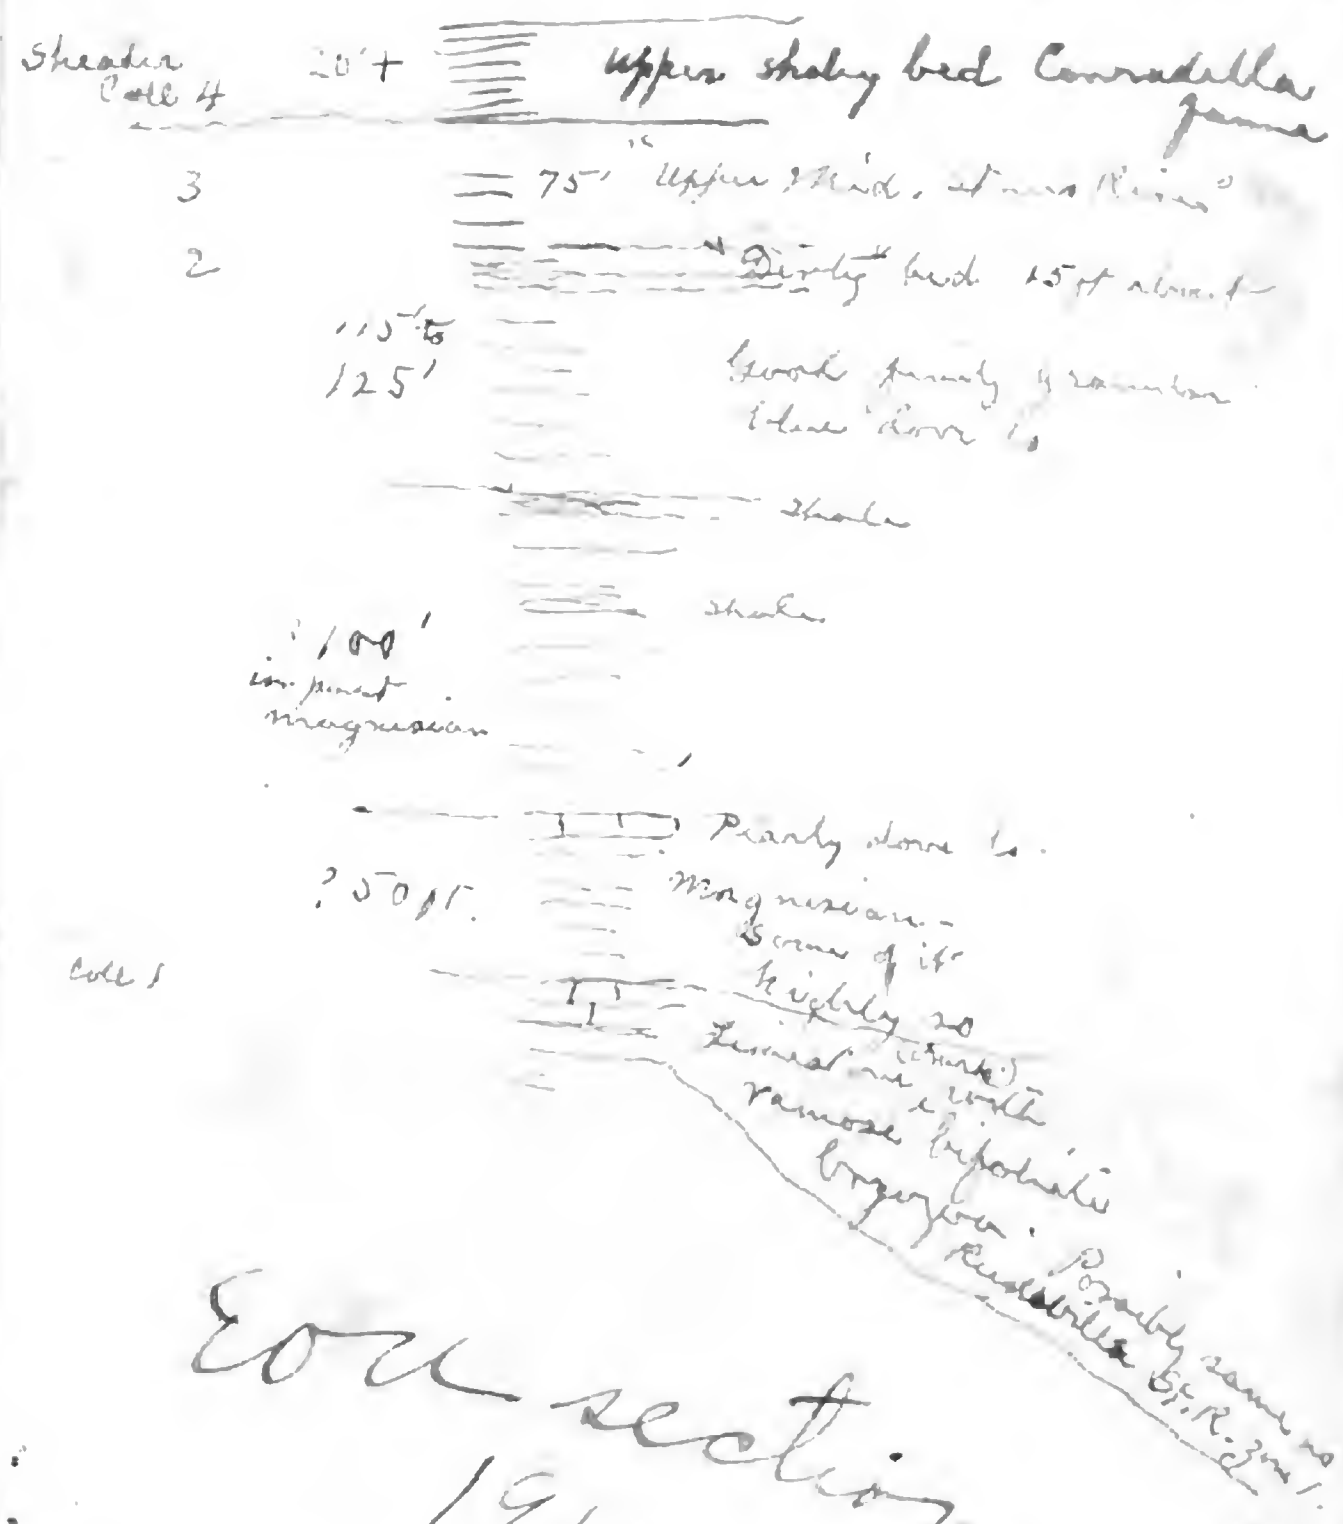 Sheader
Coll 4
20'+
Upper shaly bed Conradella
fauna
3
75' "Upper Mid. Stones River"
2
"Dirty" bed 15 ft about
115' to
125'
Good purity
down to
Shale
Shale
? 100'
in part
magnesian
Pearly dove ls.
? 50 ft.
Magnesian -
Some of it
highly so
Coll 1
Limestone with
ramose & bifoliate
bryozoa. Possibly same as
Rusavilla St. R. zone 1.
Eoa section
191